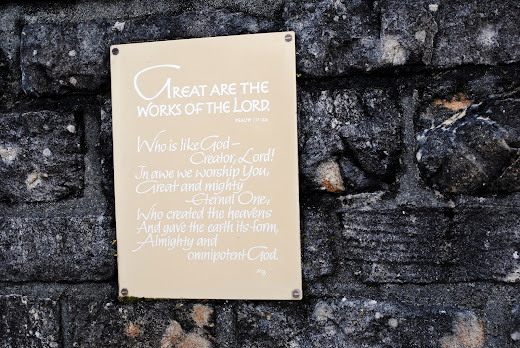 GREAT ARE THE
WORKS OF THE LORD.
Who is like God –
Creator, Lord!
In awe we worship You,
Great and mighty
– Eternal One,
Who created the heavens
And gave the earth its form,
Almighty and
omnipotent God.